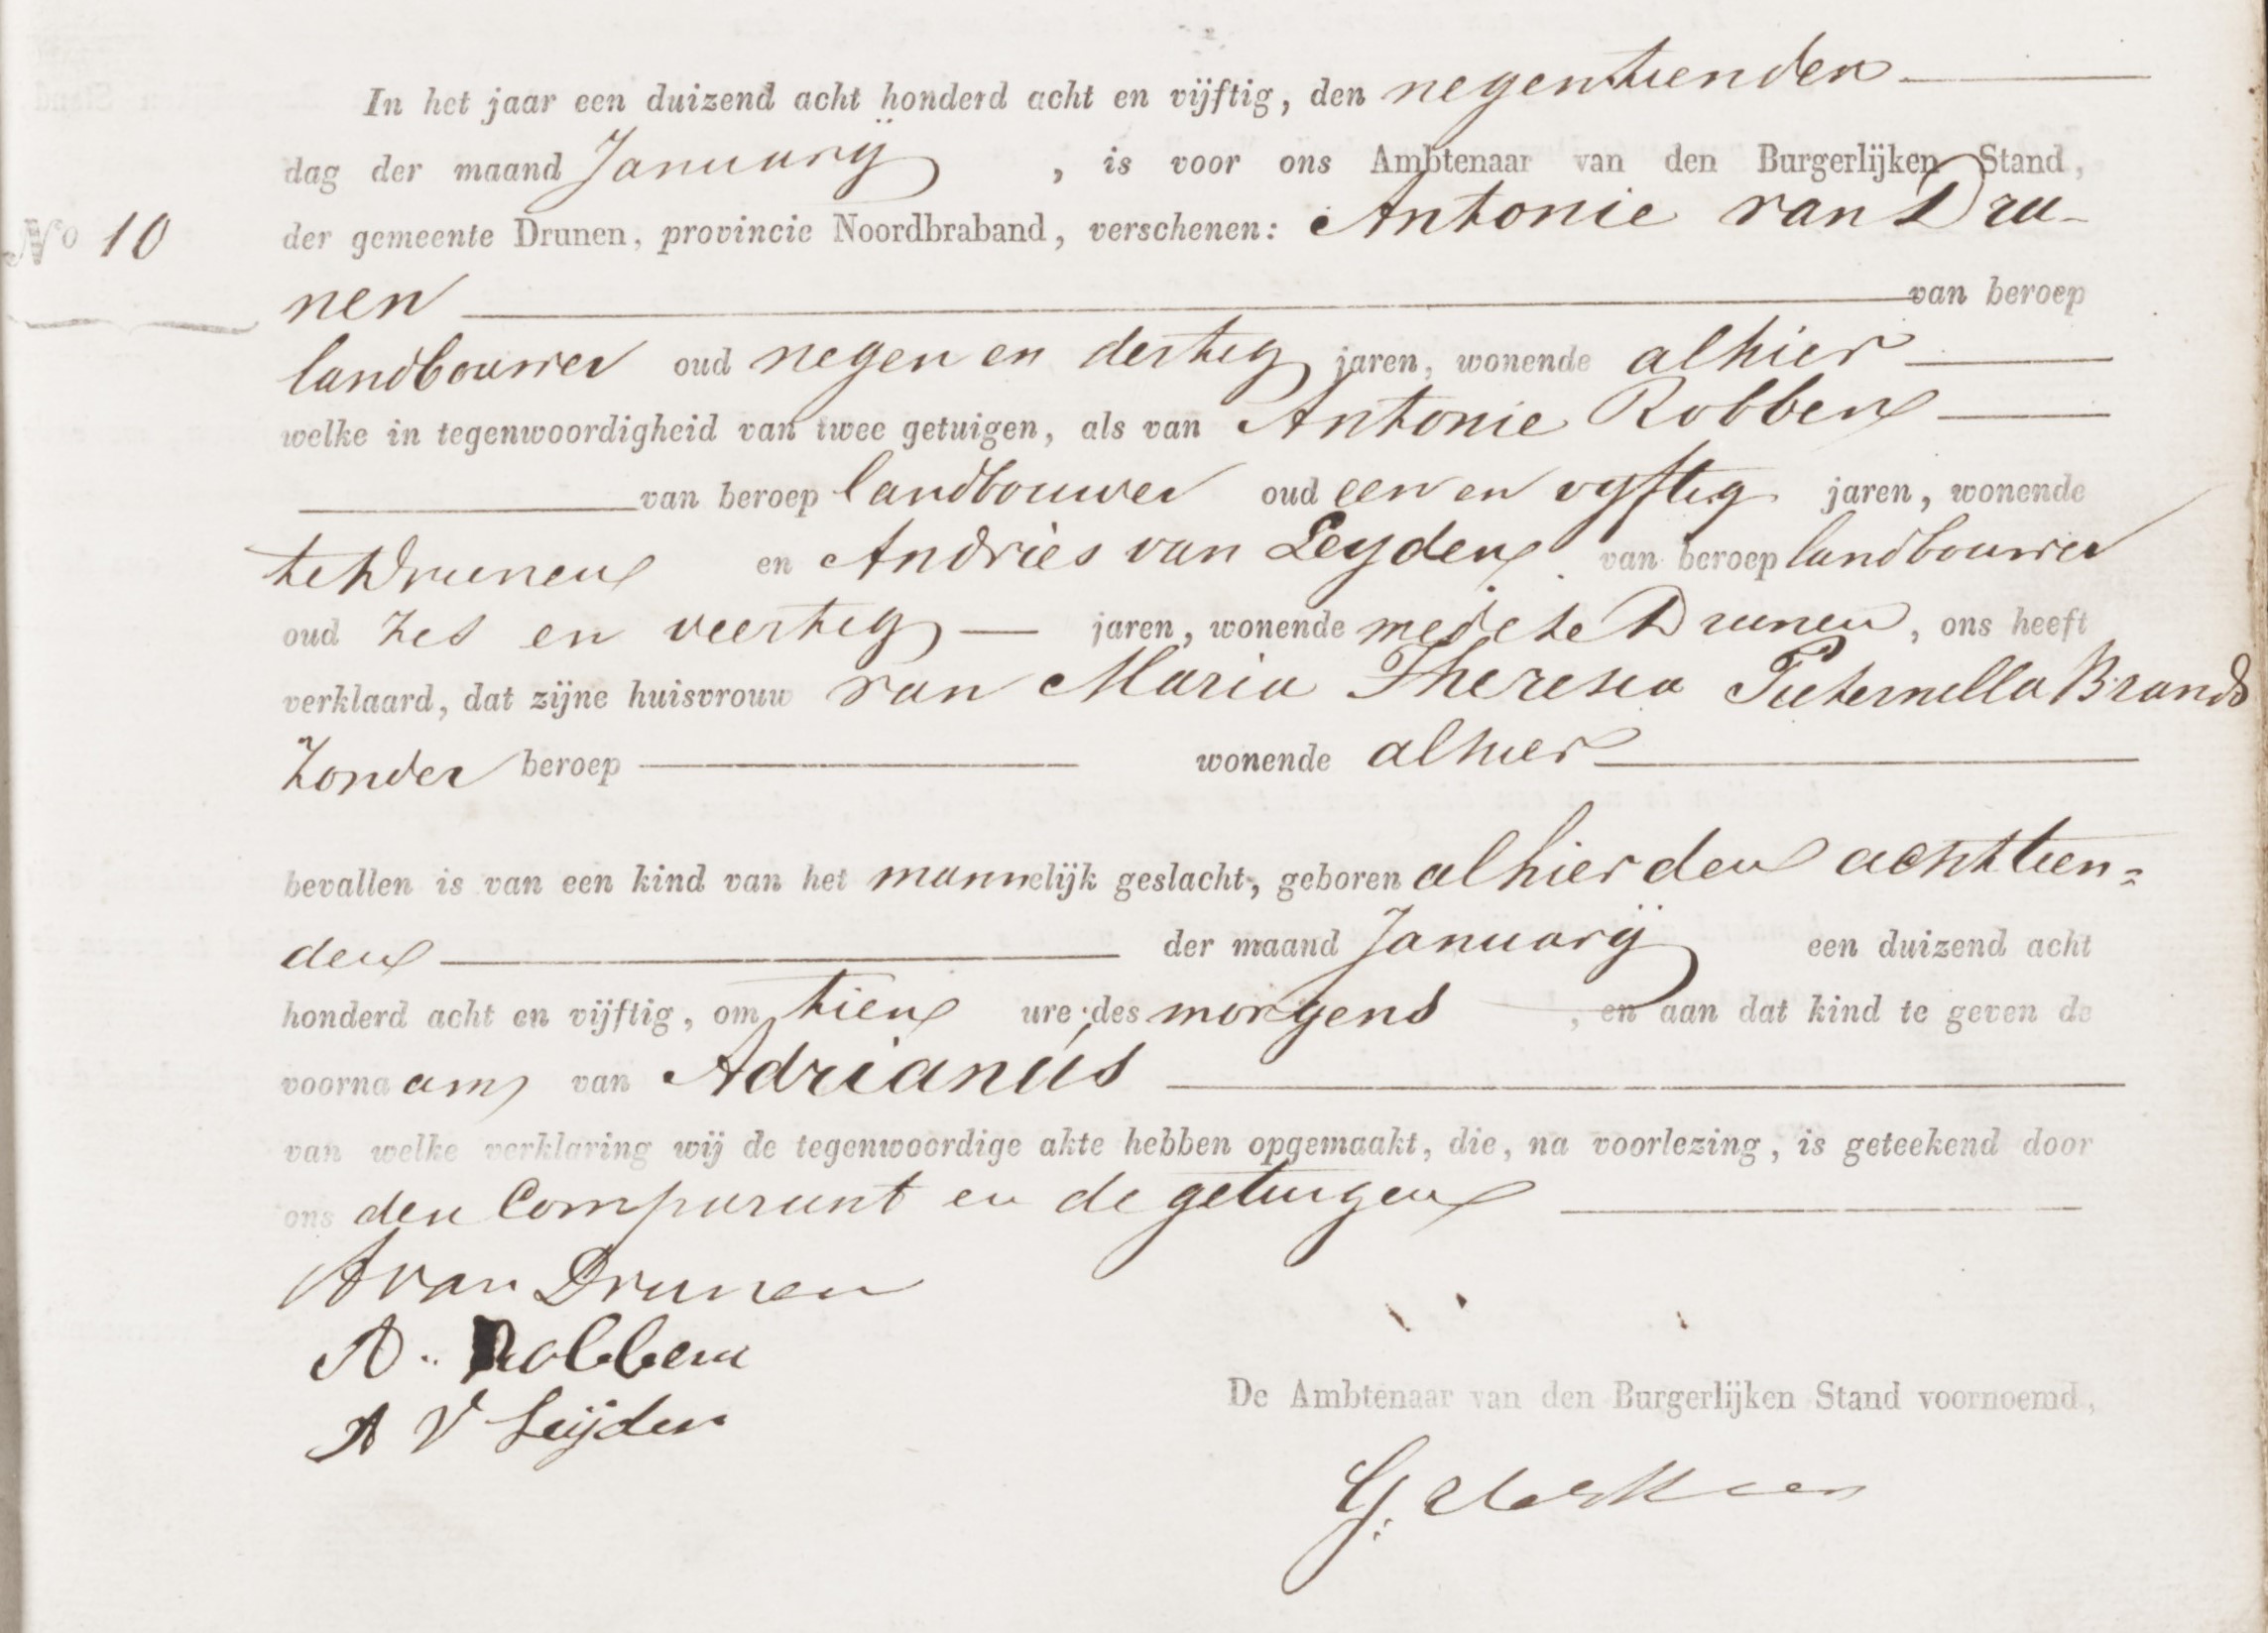 In het jaar een duizend acht honderd acht en vijftig, den negentienden
dag der maand Januarÿ , is voor ons Ambtenaar van den Burgerlijken Stand,
No 10 der gemeente Drunen, provincie Noordbraband, verschenen: Antonie van Dru-
nen van beroep
landbouwer oud negen en dertig jaren, wonende alhier
welke in tegenwoordigheid van twee getuigen, als van Antonie Robben
van beroep landbouwer oud een en vyftig jaren, wonende
te Drunen en Andries van Leyden van beroep landbouwer
oud zes en veertig jaren, wonende mede te Drunen, ons heeft
verklaard, dat zijne huisvrouw van Maria Theresia Pieternella Brands
zonder beroep wonende alhier
bevallen is van een kind van het mannelijk geslacht, geboren alhier den achttien=
den der maand Januarÿ een duizend acht
honderd acht en vijftig, om tien ure des morgens , en aan dat kind te geven de
voornaam van Adrianus
van welke verklaring wij de tegenwoordige akte hebben opgemaakt, die, na voorlezing, is geteekend door
ons den Comparant en de getuigen
A van Drunen
A. Robben
A V Leijden
De Ambtenaar van den Burgerlijken Stand voornoemd,
G.